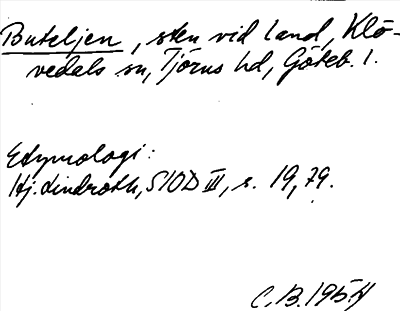 Buteljen, sten vid land, Klö-
vedals sn, Tjörns hd, Göteb. l.
Etymologi:
Hj. Lindroth, SIOD III, s. 19, 79.
C.B. 1954